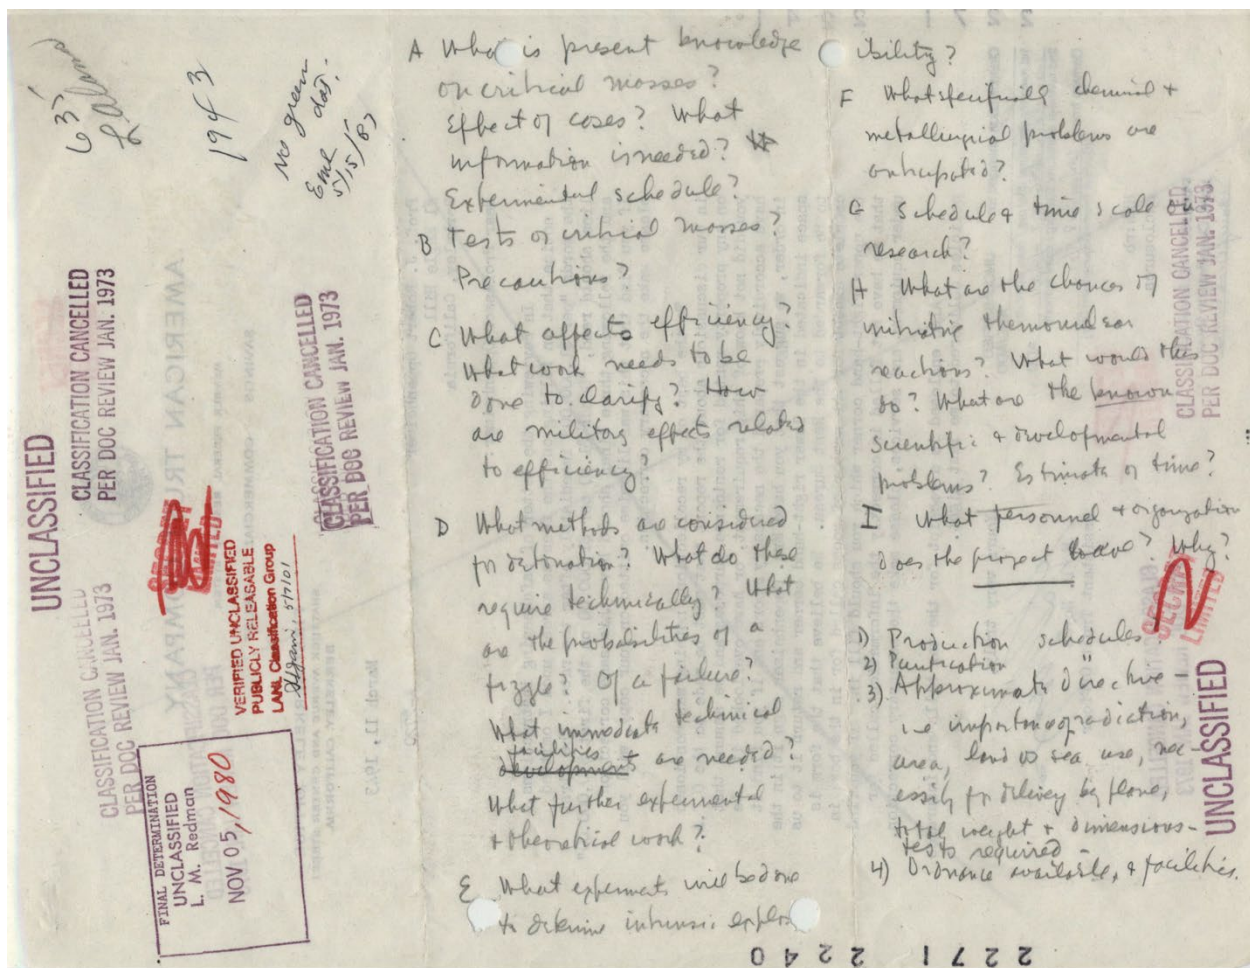 63
1943
No green
dot.
EMC
5/15/87
UNCLASSIFIED
CLASSIFICATION CANCELLED
PER DOC REVIEW JAN. 1973
CLASSIFICATION CANCELLED
PER DOC REVIEW JAN. 1973
CLASSIFICATION CANCELLED
PER DOC REVIEW JAN. 1973
SECRET
LIMITED
VERIFIED UNCLASSIFIED
PUBLICLY RELEASABLE
LANL Classification Group
5/7/01
FINAL DETERMINATION
UNCLASSIFIED
L. M. Redman
NOV 05, 1980
A What is present knowledge
on critical masses?
Effect of cases? What
information is needed?
Experimental schedule?
B Tests of critical masses?
Precautions?
C What affects efficiency?
What work needs to be
done to clarify? How
are military effects related
to efficiency?
D What methods are considered
for detonation? What do these
require technically? What
are the probabilities of a
fizzle? Of a failure?
What immediate technical
facilities
development are needed?
What further experimental
+ theoretical work?
E What experiments will be done
to determine intrinsic explos
ibility?
F What specifically chemical +
metallurgical problems are
anticipated?
G Schedule & time scale of
research?
H What are the chances of
initiating thermonuclear
reactions? What would this
do? What are the known
scientific + developmental
problems? Estimate of time?
I What personnel & organization
does the project have? Why?
1) Production schedules
2) Purification
3) Approximate directive -
i.e importance of radiation,
area, land vs sea use, nec
essity for delivery by plane,
total weight + dimensions-
tests required -
4) Ordnance available, & facilities.
CLASSIFICATION CANCELLED
PER DOC REVIEW JAN. 1973
SECRET
LIMITED
UNCLASSIFIED
2271 2240
AMERICAN TRUST COMPANY